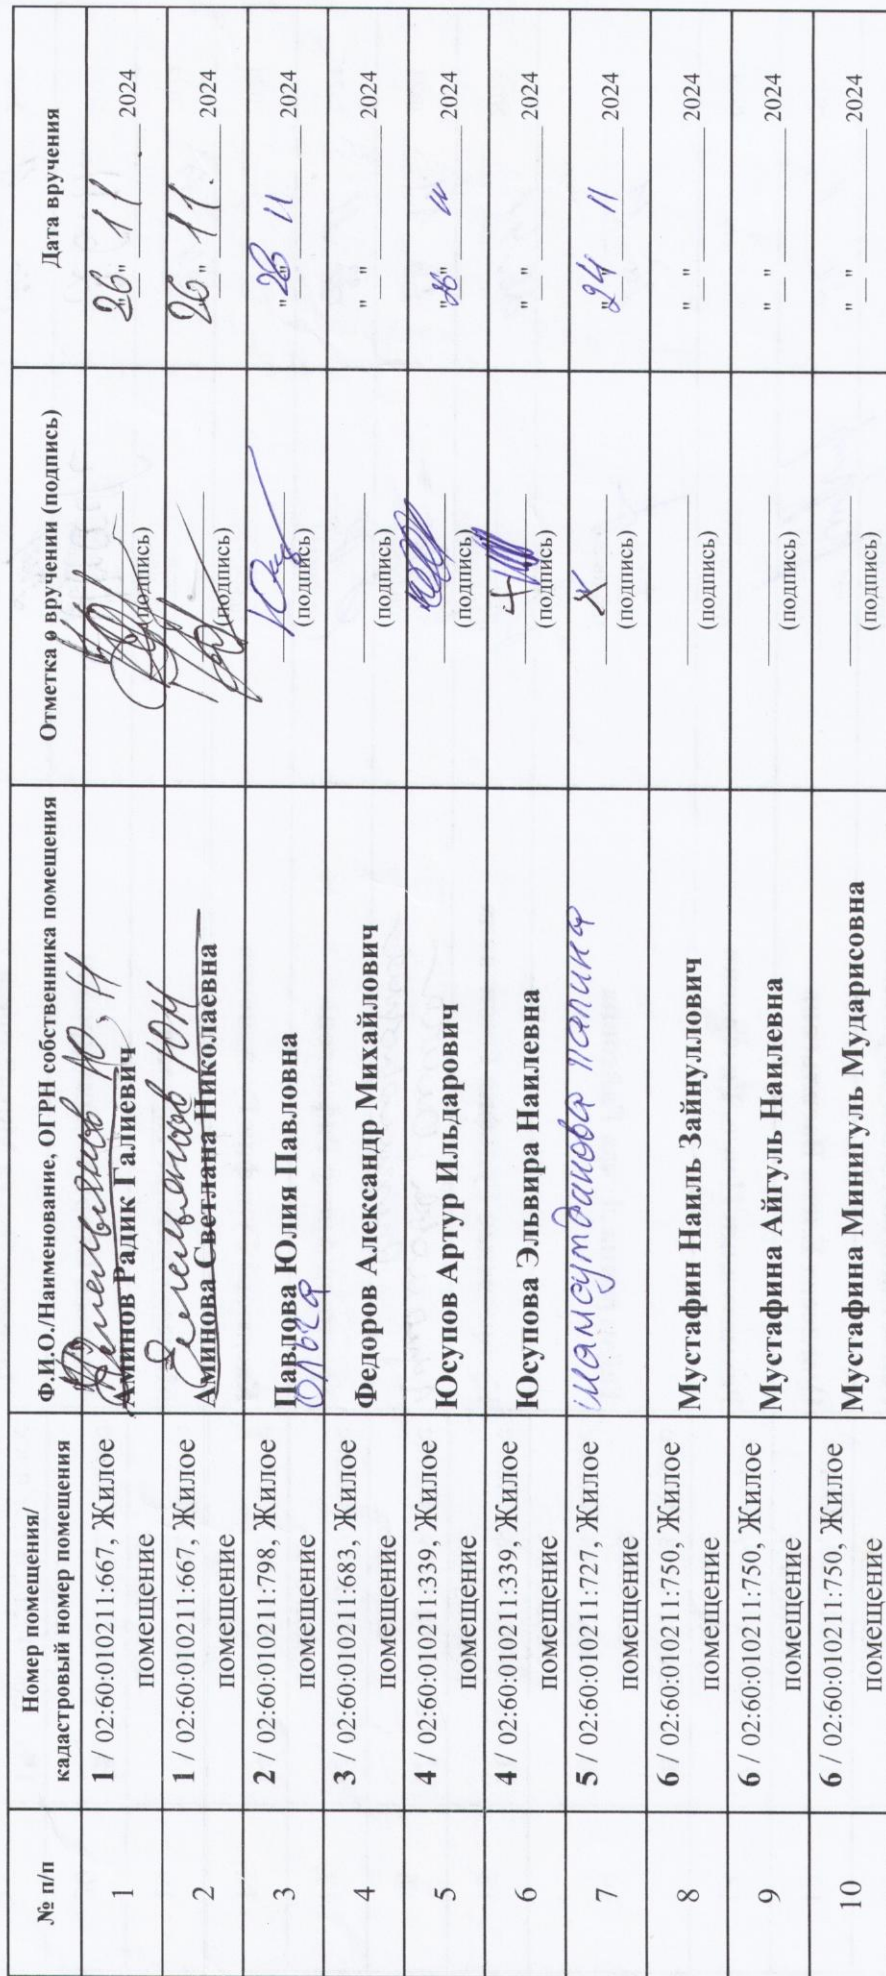 № п/п
Номер помещения/
кадастровый номер помещения
Ф.И.О./Наименование, ОГРН собственника помещения
Отметка о вручении (подпись)
Дата вручения
1
1 / 02:60:010211:667, Жилое
помещение
Ю. Н
Аминов Радик Галиевич
(подпись)
"26" 11. 2024
2
1 / 02:60:010211:667, Жилое
помещение
ЮН
Аминова Светлана Николаевна
(подпись)
26" 11. 2024
3
2 / 02:60:010211:798, Жилое
помещение
Павлова Юлия Павловна
Ольга
(подпись)
"26" 11 2024
4
3 / 02:60:010211:683, Жилое
помещение
Федоров Александр Михайлович
(подпись)
" " 2024
5
4 / 02:60:010211:339, Жилое
помещение
Юсупов Артур Ильдарович
(подпись)
"26" 11 2024
6
4 / 02:60:010211:339, Жилое
помещение
Юсупова Эльвира Наилевна
(подпись)
" " 2024
7
5 / 02:60:010211:727, Жилое
помещение
(подпись)
"24 11 2024
8
6 / 02:60:010211:750, Жилое
помещение
Мустафин Наиль Зайнуллович
(подпись)
" " 2024
9
6 / 02:60:010211:750, Жилое
помещение
Мустафина Айгуль Наилевна
(подпись)
" " 2024
10
6 / 02:60:010211:750, Жилое
помещение
Мустафина Минигуль Мударисовна
(подпись)
" " 2024